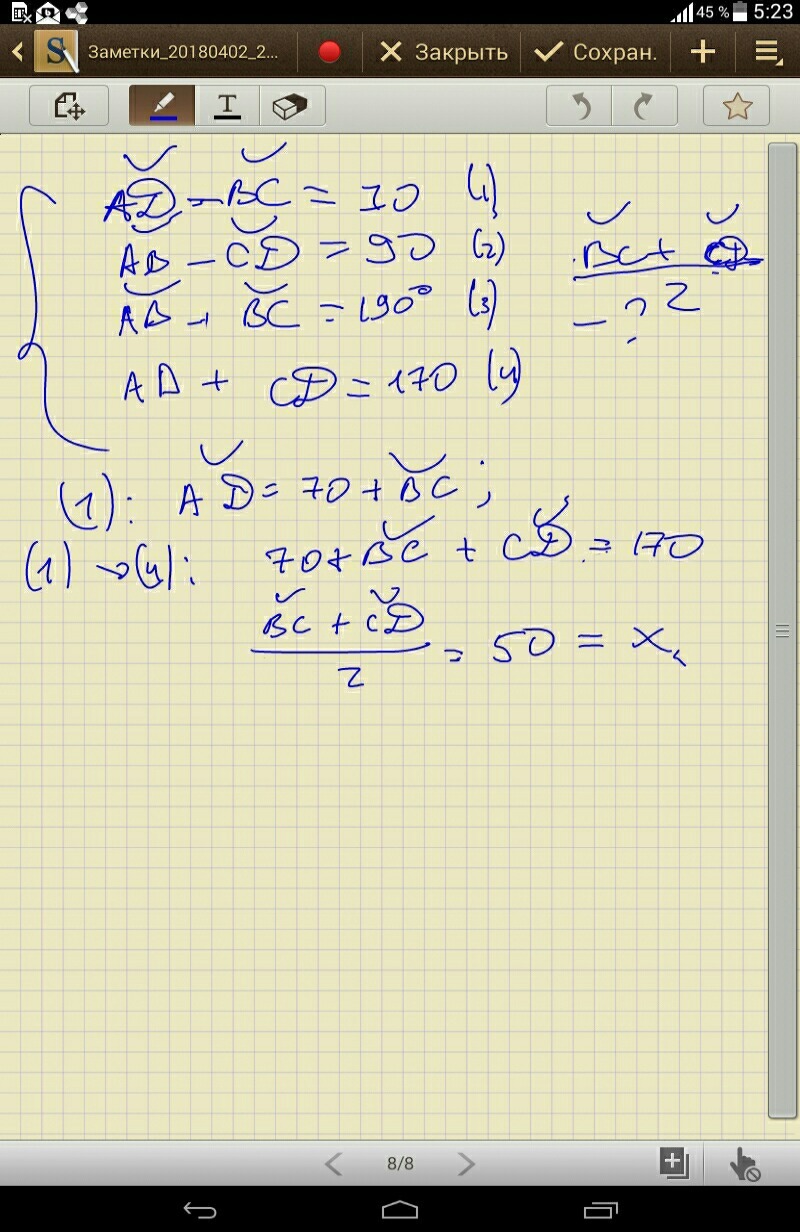 45 % 5:23
Заметки_20180402_2... Закрыть Сохран.
T
AD − BC = 70 (1)
AB − CD = 90 (2)
AB + BC = 190° (3)
AD + CD = 170 (4)
BC + CD
2
− ?
(1): AD = 70 + BC ;
(1) → (4): 70 + BC + CD = 170
BC + CD
2
= 50 = x
8/8